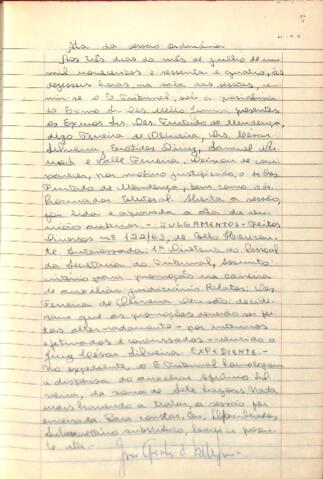 Ata da sessão ordinária
Aos três dias do mês de julho de um
mil novecentos e sessenta e quatro, às
dezesseis horas, na sala das sessões, reu-
niu-se o E. Tribunal, sob a presidência
do Exmo. Sr. Des. Melo Junior, presentes
os Exmos. Srs. Des. Furtado de Mendonça,
digo Ferreira de Oliveira, Drs. César
Silveira, Euclides Diniz, Samuel
e Valle Ferreira. Deixou de com-
parecer, por motivo justificado, o sr. Des.
Furtado de Mendonça, bem como o dr.
Procurador Eleitoral. Aberta a sessão,
foi lida e aprovada a ata da reu-
nião anterior. - JULGAMENTOS - Feitos
Diversos nº 122/63, de Belo Horizon-
te. Interessada: 1ª Diretoria do Pessoal
da Secretaria do Tribunal, Assunto:
critério para promoção na carreira
de auxiliar judiciário. Relator: Des.
Ferreira de Oliveira. Decisão: decidi-
ram que as promoções deverão ser fei-
tas alternadamente - por interinos
efetivados e concursados - vencido o
Juiz César Silveira. EXPEDIENTE. -
No expediente, o E. Tribunal homologou
a dispensa do auxiliar
, da zona de Sete Lagoas. Nada
mais havendo a tratar, a sessão foi
encerrada. Para constar, eu,
Subsecretário substituto, lavrei a presen-
te ata. -